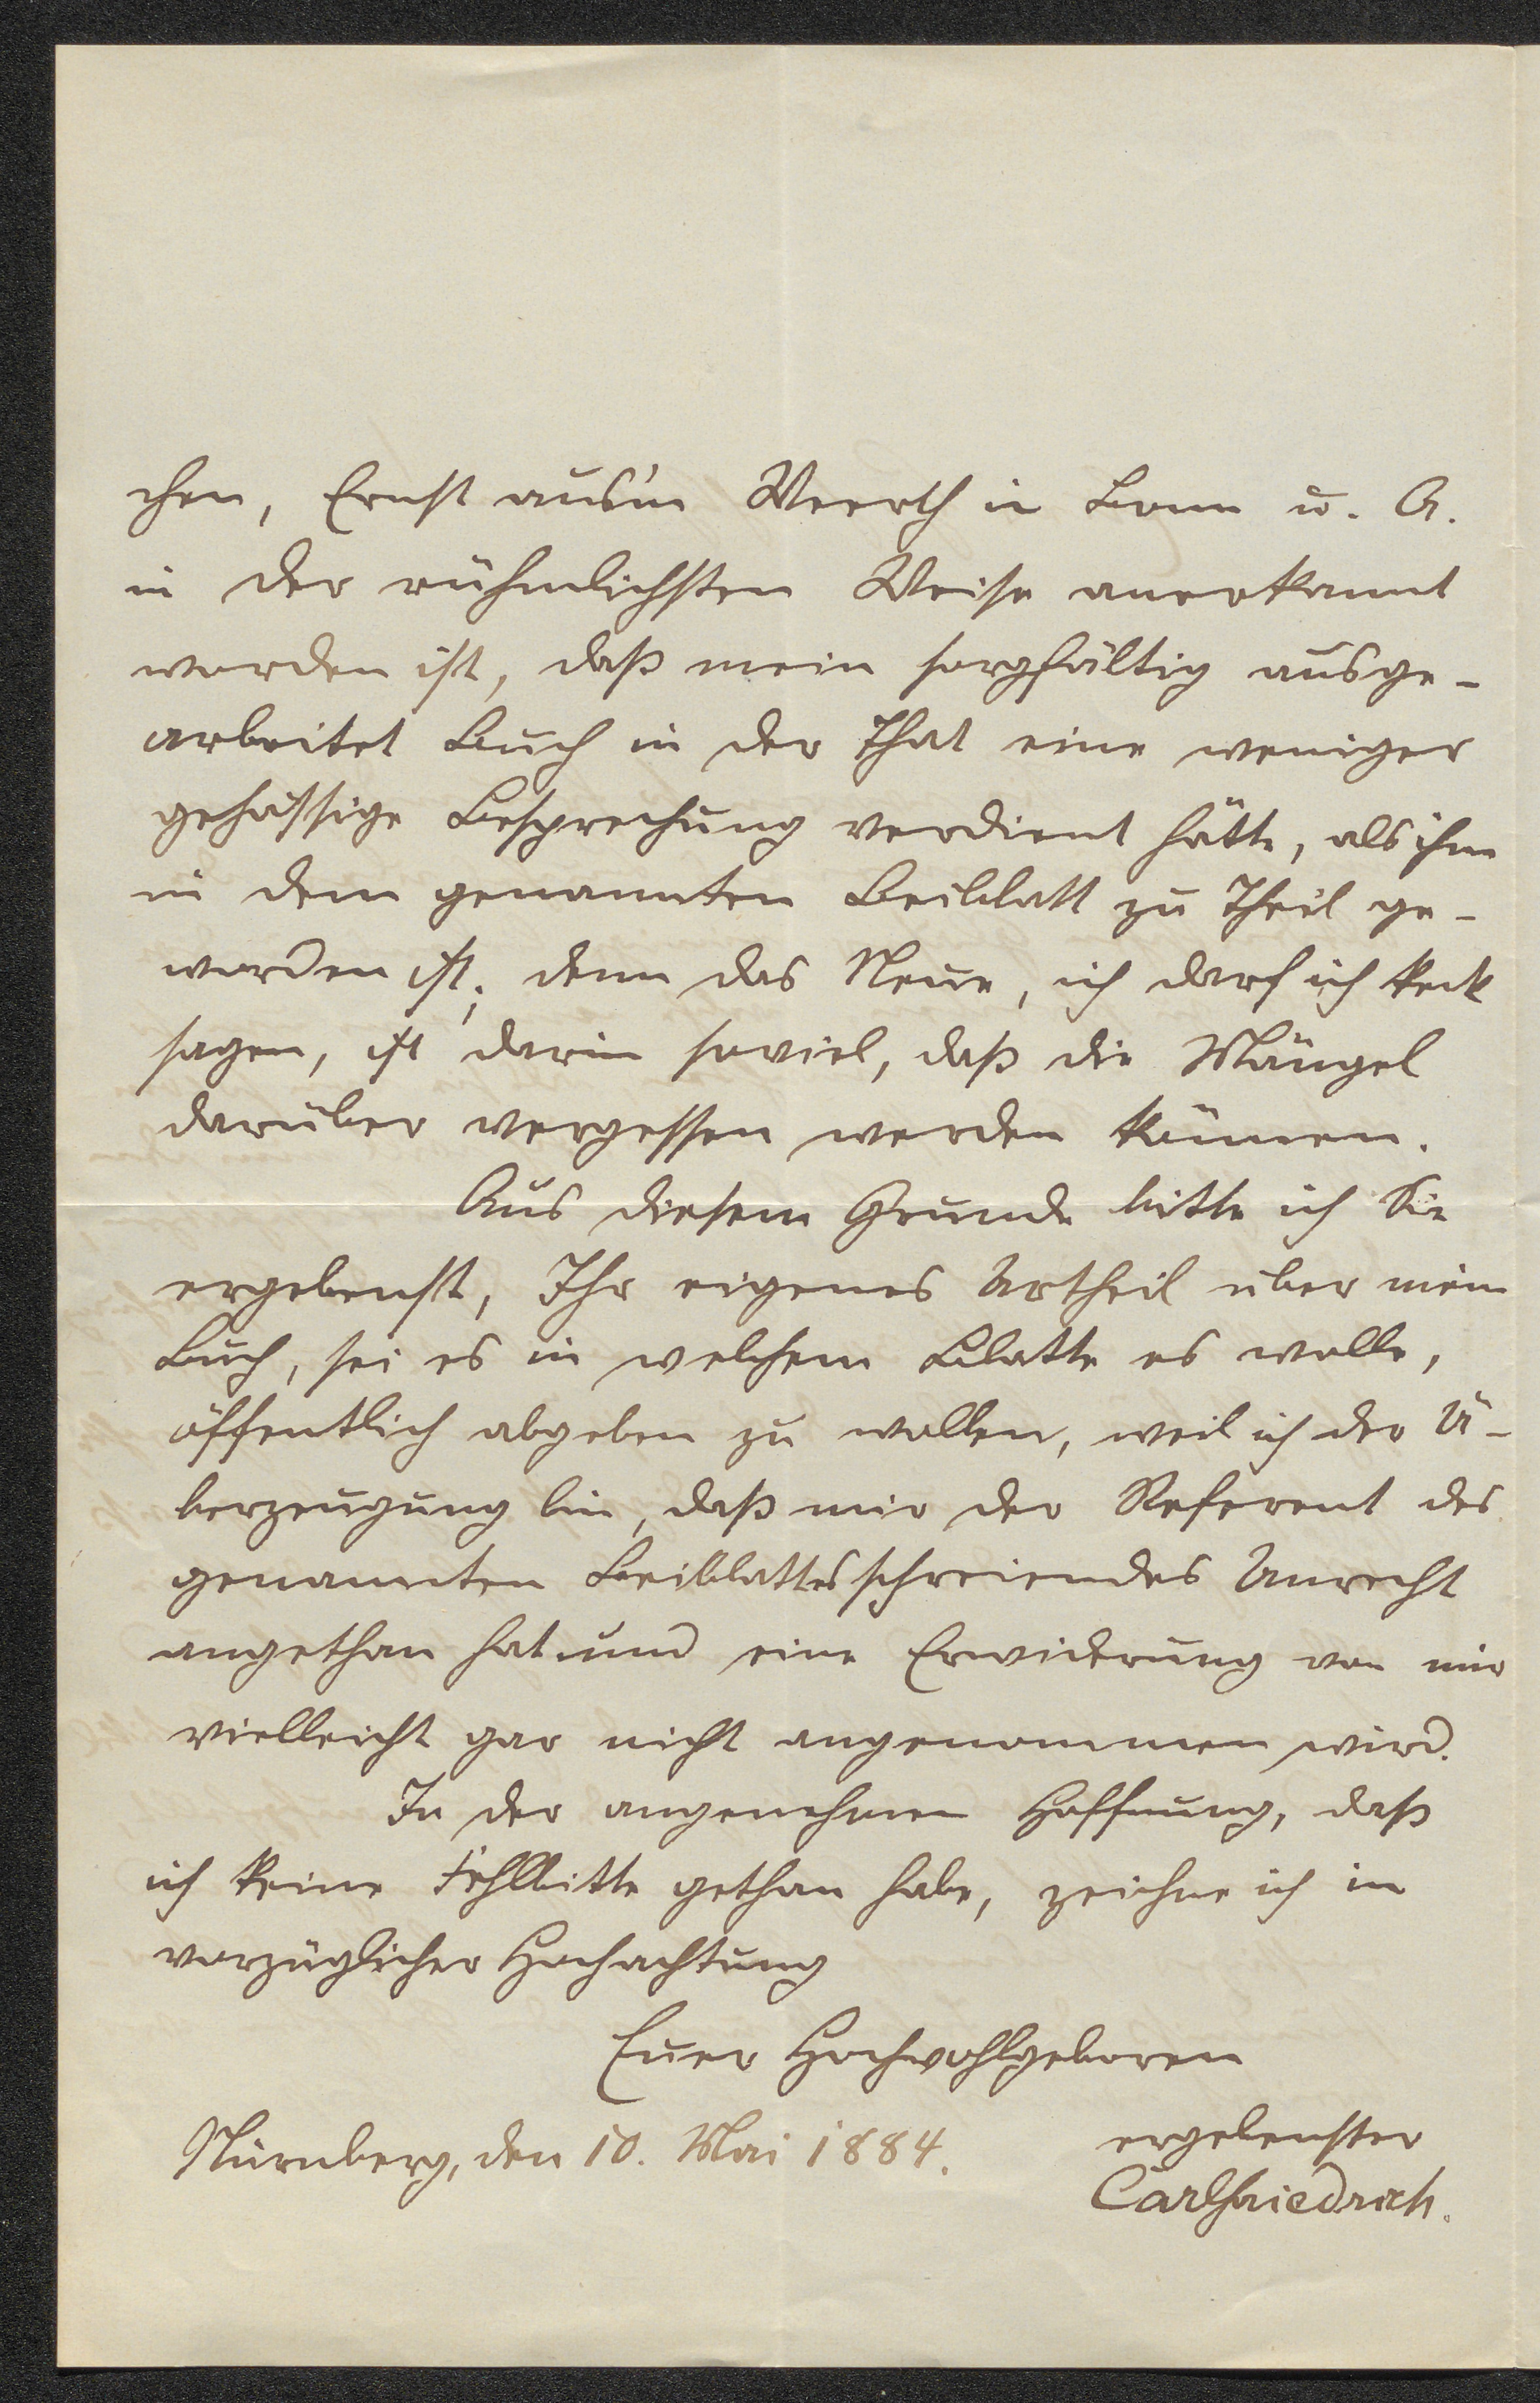 chen, Ernst aus'm Weerth in Bonn u. A.
in der rühmlichsten Weise anerkannt
worden ist, daß mein sorgfältig ausge-
arbeitet Buch in der That eine weniger
gehässige Besprechung verdient hätte, als ihm
in dem genannten Beiblatt zu Theil ge-
worden ist; denn das Neue, ich darf ich keck
sagen, ist darin soviel, daß die Mängel
darüber vergessen werden können.
Aus diesem Grunde bitte ich Sie
ergebenst, Ihr eigenes Urtheil über mein
Buch, sei es in welchem Blatte es wolle,
öffentlich abgeben zu wollen, weil ich der Ü-
berzeugung bin, daß mir der Referent des
genannten Beiblattes schreiendes Unrecht
angethan hat und eine Erwiderung von mir
vielleicht gar nicht angenommen wird.
In der angenehmen Hoffnung, daß
ich keine Fehlbitte gethan habe, zeichne ich in
vorzüglicher Hochachtung
Euer Hochwohlgeboren
ergebenster
Nürnberg, den 10. Mai 1884.
Carl Friedrich.